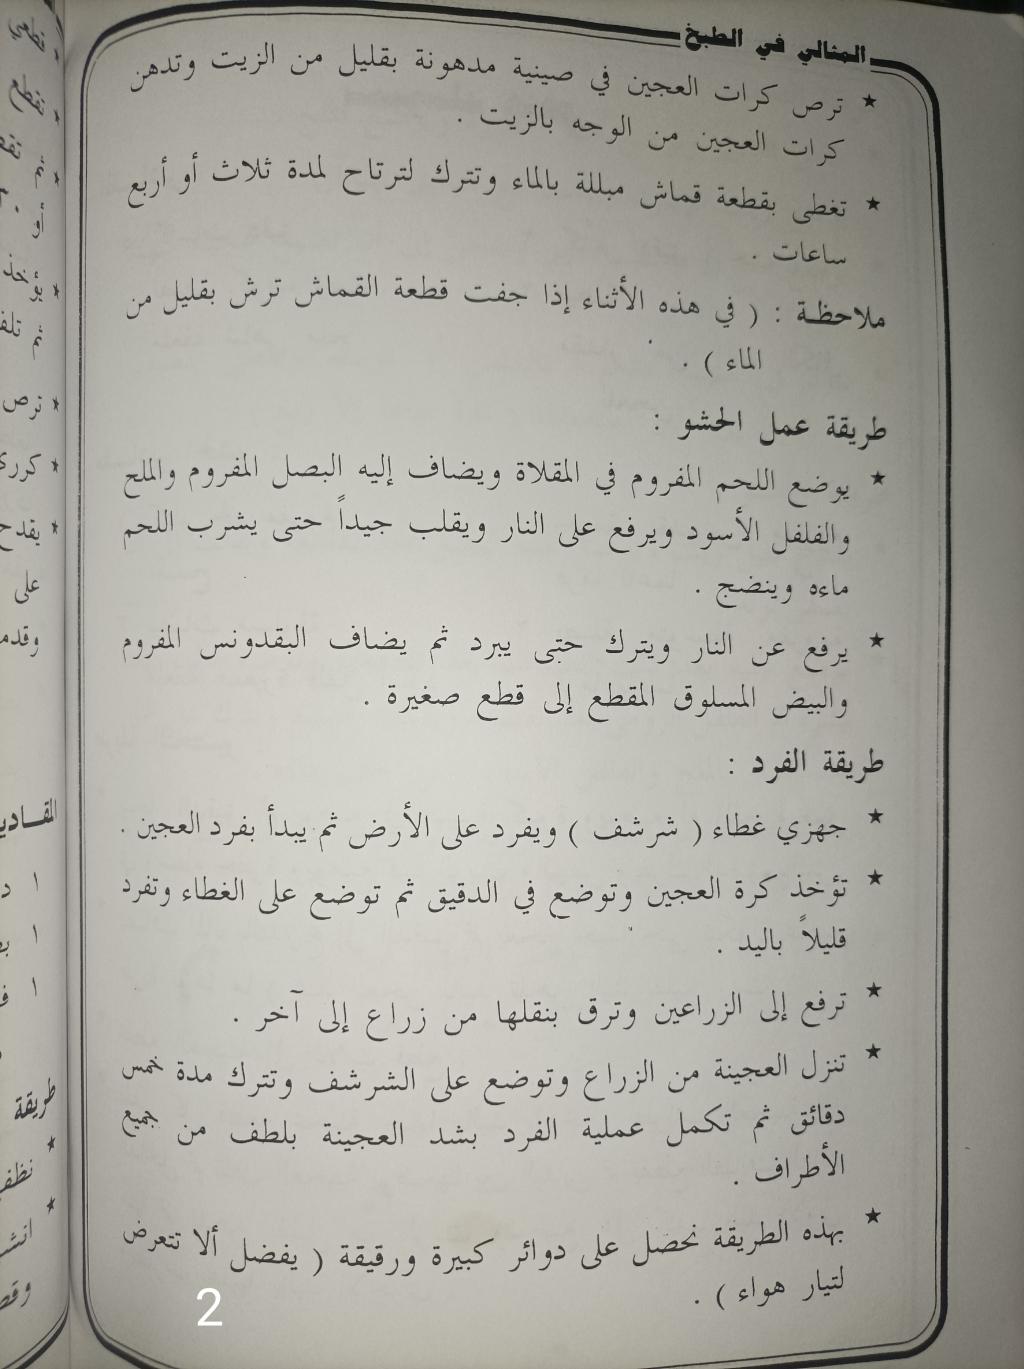 المثالي في الطبخ
★ ترص كرات العجين في صينية مدهونة بقليل من الزيت وتدهن
كرات العجين من الوجه بالزيت .
★ تغطى بقطعة قماش مبللة بالماء وتترك لترتاح لمدة ثلاث أو أربع
ساعات .
ملاحظة : ( في هذه الأثناء إذا جفت قطعة القماش ترش بقليل من
الماء ) .
طريقة عمل الحشو :
★ يوضع اللحم المفروم في المقلاة ويضاف إليه البصل المفروم والملح
والفلفل الأسود ويرفع على النار ويقلب جيداً حتى يشرب اللحم
ماءه وينضج .
★ يرفع عن النار ويترك حتى يبرد ثم يضاف البقدونس المفروم
والبيض المسلوق المقطع إلى قطع صغيرة .
طريقة الفرد :
★ جهزي غطاء ( شرشف ) ويفرد على الأرض ثم يبدأ بفرد العجين .
★ تؤخذ كرة العجين وتوضع في الدقيق ثم توضع على الغطاء وتفرد
قليلاً باليد .
★ ترفع إلى الزراعين وترق بنقلها من زراع إلى آخر .
★ تنزل العجينة من الزراع وتوضع على الشرشف وتترك مدة خمس
دقائق ثم تكمل عملية الفرد بشد العجينة بلطف من جميع
الأطراف .
★ بهذه الطريقة نحصل على دوائر كبيرة ورقيقة ( يفضل ألا تتعرض
لتيار هواء ) .
2
★ ترص
★ يقدح
على
وقدم
طريقة